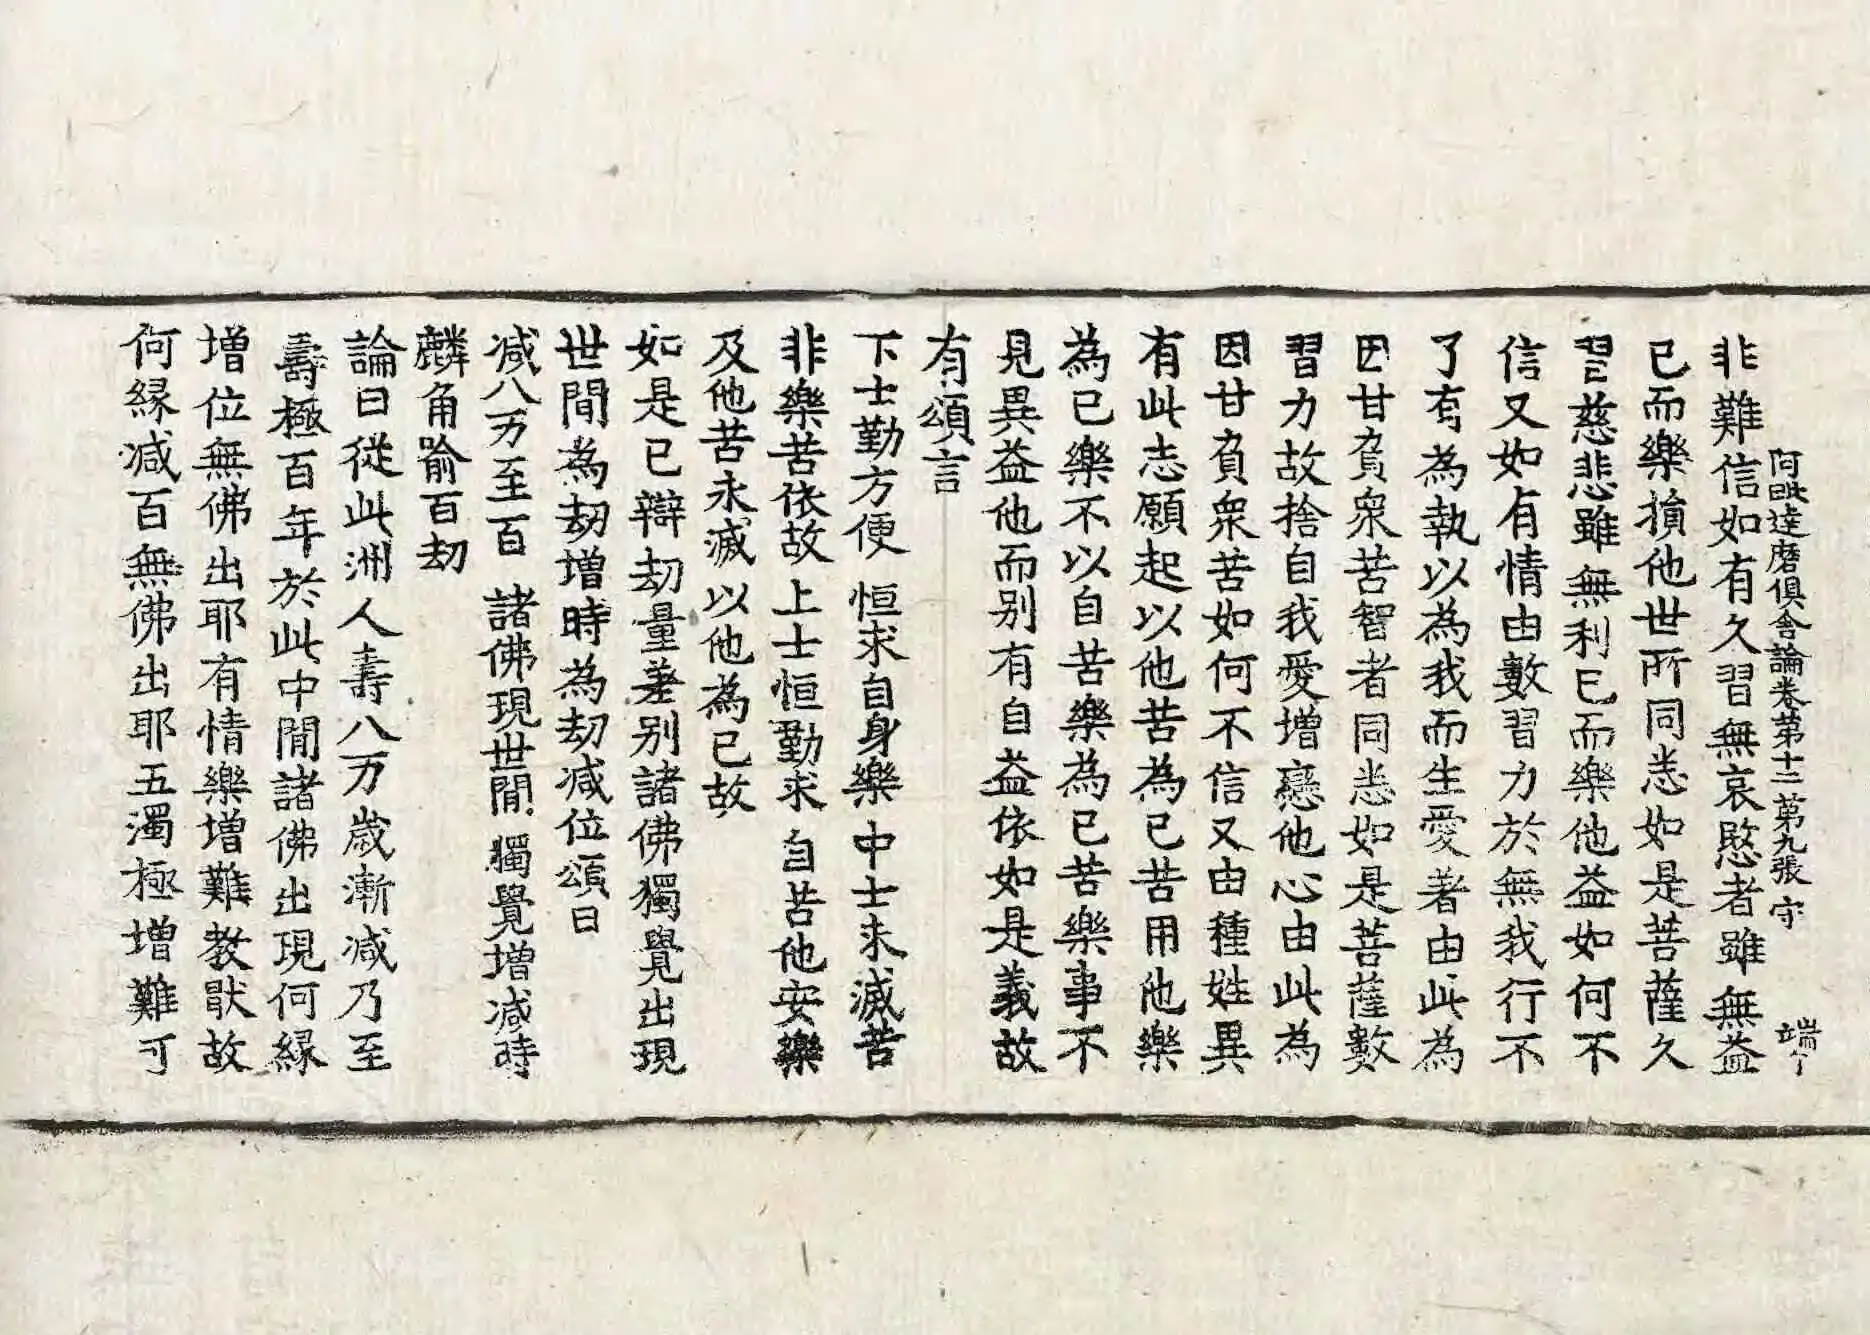 阿毗達磨俱舍論卷第十二 第九張 守 端丁
非難信如有久習無哀愍者雖無益
已而樂損他世所同悉如是菩薩久
習慈悲雖無利已而樂他益如何不
信又如有情由數習力於無我行不
了有為執以為我而生愛著由此為
因甘負衆苦智者同悉如是菩薩數
習力故捨自我愛增戀他心由此為
因甘負衆苦如何不信又由種姓異
有此志願起以他苦為已苦用他樂
為已樂不以自苦樂為已苦樂事不
見異益他而別有自益依如是義故
有頌言
下士勤方便 恒求自身樂 中士求滅苦
非樂苦依故 上士恒勤求 自苦他安樂
及他苦永滅 以他為已故
如是已辯劫量差別諸佛獨覺出現
世間為劫增時為劫減位頌曰
减八万至百 諸佛現世間 獨覺增减時
麟角喻百劫
論曰從此洲人壽八万歲漸减乃至
壽極百年於此中間諸佛出現何緣
增位無佛出耶有情樂增難教猒故
何緣减百無佛出耶五濁極增難可